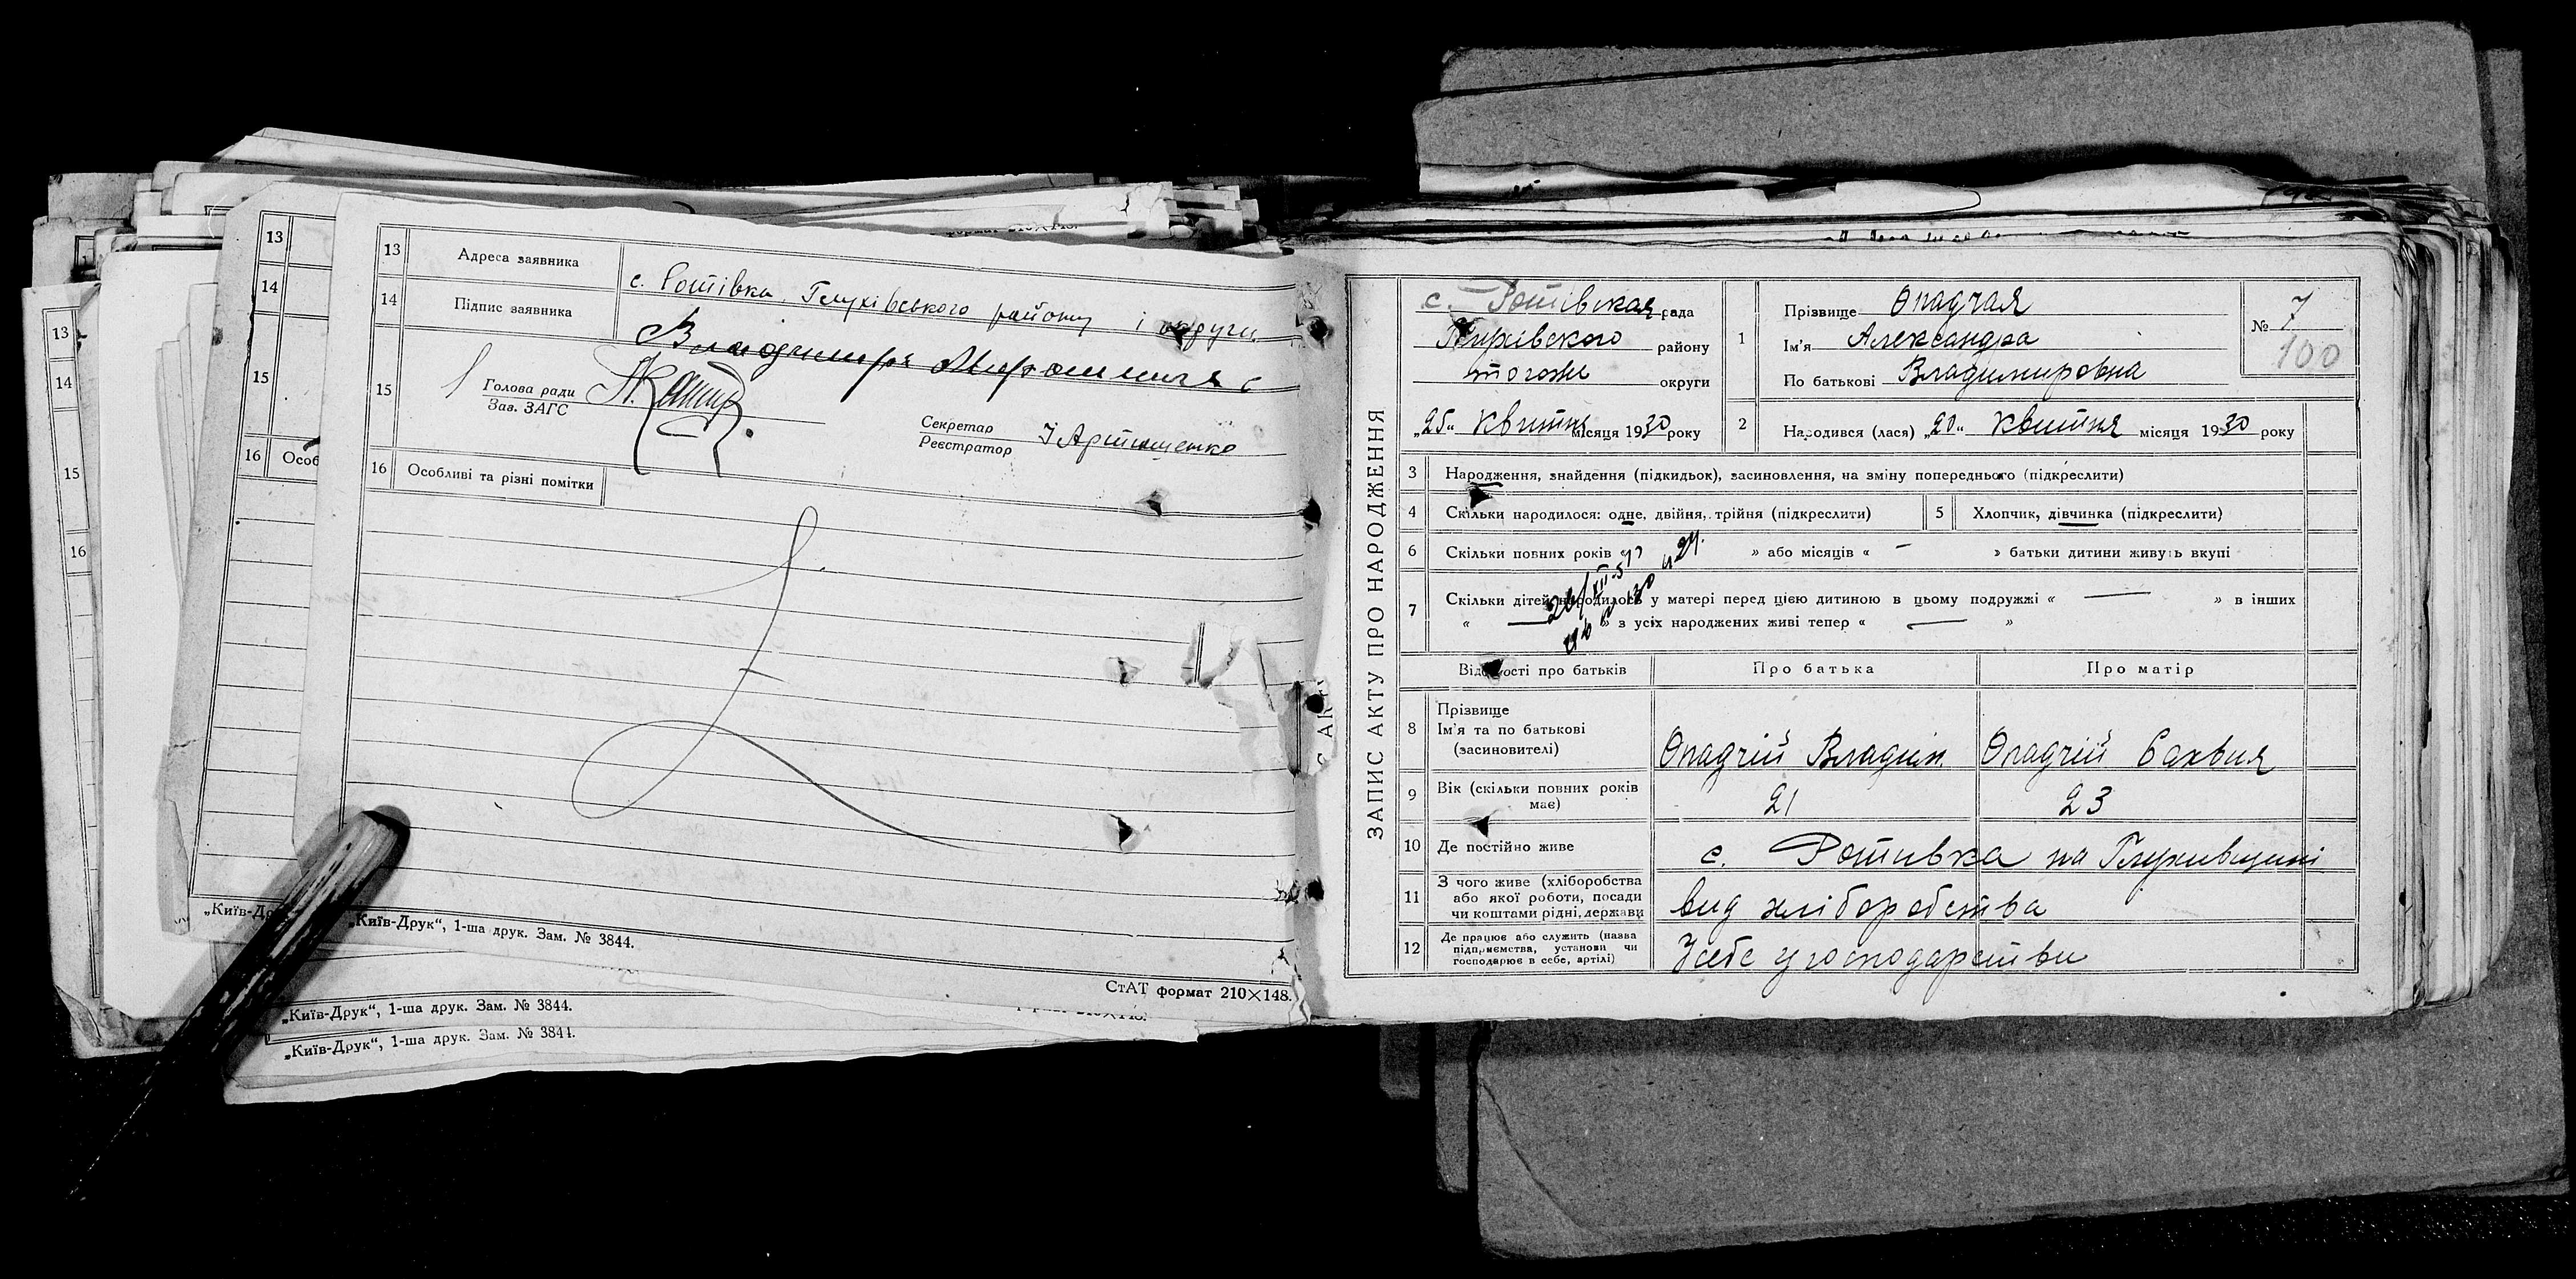 13
14
15
16
13
14
15
16 Особ
„Київ-Др
13 Адреса заявника с. Ротівка Глухівського району і округи
14 Підпис заявника Владимиръ
15 Голова ради
Зав. ЗАГС
Секретар
Реєстратор І Артюшенко
16 Особливі та різні помітки
„Київ-Друк“, 1-ша друк. Зам. № 3844.
СтАТ формат 210×148.
„Київ-Друк“, 1-ша друк. Зам. № 3844.
„Київ-Друк“, 1-ша друк. Зам. № 3844.
ЗАПИС АКТУ ПРО НАРОДЖЕННЯ
с. Ротівская рада
Глухівского району
тогоже округи
„25“ Квитня місяця 1930 року
1 Прізвище Опадчая
Ім'я Александра
По батькові Владимировна
№ 7
100
2 Народився (лася) „20“ Квитня місяця 1930 року
3 Народження, знайдення (підкидьок), засиновлення, на зміну попереднього (підкреслити)
4 Скільки народилося: одне, двійня, трійня (підкреслити)
5 Хлопчик, дівчинка (підкреслити)
6 Скільки повних років » або місяців « — » батьки дитини живуть вкупі
7 Скільки дітей народилося у матері перед цією дитиною в цьому подружжі « — » в інших
« — » з усіх народжених живі тепер « — »
Відомості про батьків Про батька Про матір
8 Прізвище
Ім'я та по батькові
(засиновителі)
Опадчій Владим Опадчій
9 Вік (скільки повних років має) 21 23
10 Де постійно живе с. Ротивка на Глухивщині
11 З чого живе (хліборобства
або якої роботи, посади
чи коштами рідні, держави
вид хліборобства
12 Де працює або служить (назва
підприємства, установи чи
господарює в себе, артілі)
Усебе у господарстви